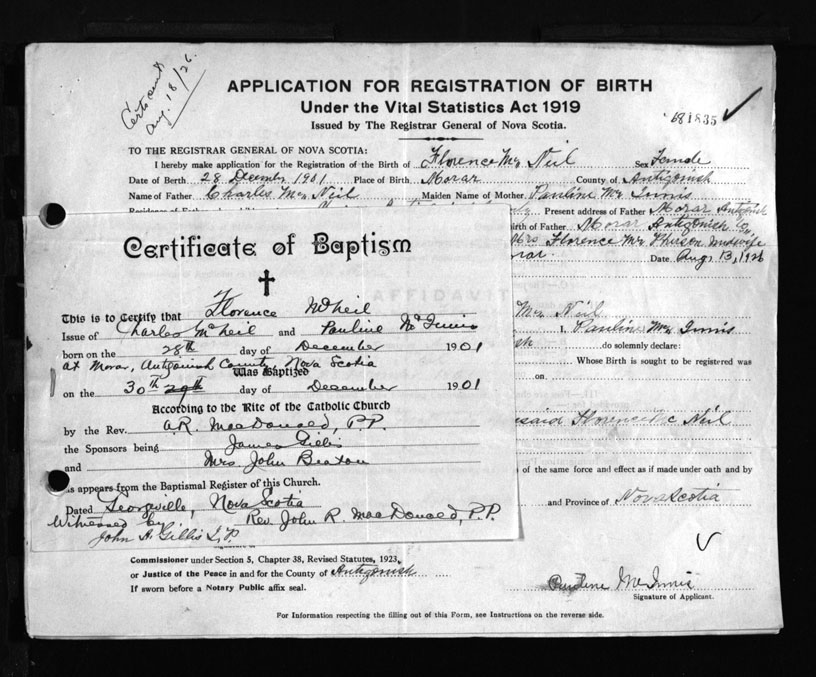 Cert sent
Aug. 18/26.
APPLICATION FOR REGISTRATION OF BIRTH
Under the Vital Statistics Act 1919
Issued by The Registrar General of Nova Scotia.
681835
TO THE REGISTRAR GENERAL OF NOVA SCOTIA:
I hereby make application for the Registration of the Birth of Florence Mc Neil Sex Female
Date of Birth 28 December 1901 Place of Birth Morar County of Antigonish
Name of Father Charles Mc Neil Maiden Name of Mother Pauline Mc Innis
Present address of Father Morar Antigonish
Birth of Father Morar Antigonish Co
Mrs Florence Mc Pherson midwife
Morar. Date Aug 13, 1926
Certificate of Baptism
AFFIDAVIT
This is to Certify that Florence McNeil
Issue of Charles McNeil and Pauline McInnis
born on the 28th day of December 1901
at Morar, Antigonish County Nova Scotia
Was Baptized
on the 30th 29th day of December 1901
According to the Rite of the Catholic Church
by the Rev. A.R. MacDonald, P.P.
the Sponsors being James Gillis
and Mrs John Beaton
as appears from the Baptismal Register of this Church.
Dated Georgeville, Nova Scotia
Witnessed by Rev. John R. MacDonald, P.P.
John A. Gillis J.P.
Mc Neil
I, Pauline Mc Innis
do solemnly declare:
Whose Birth is sought to be registered was
on
said Florence Mc Neil
of the same force and effect as if made under oath and by
and Province of Nova Scotia
Commissioner under Section 5, Chapter 38, Revised Statutes, 1923,
or Justice of the Peace in and for the County of Antigonish
If sworn before a Notary Public affix seal.
Pauline McInnis
Signature of Applicant.
For Information respecting the filling out of this Form, see Instructions on the reverse side.